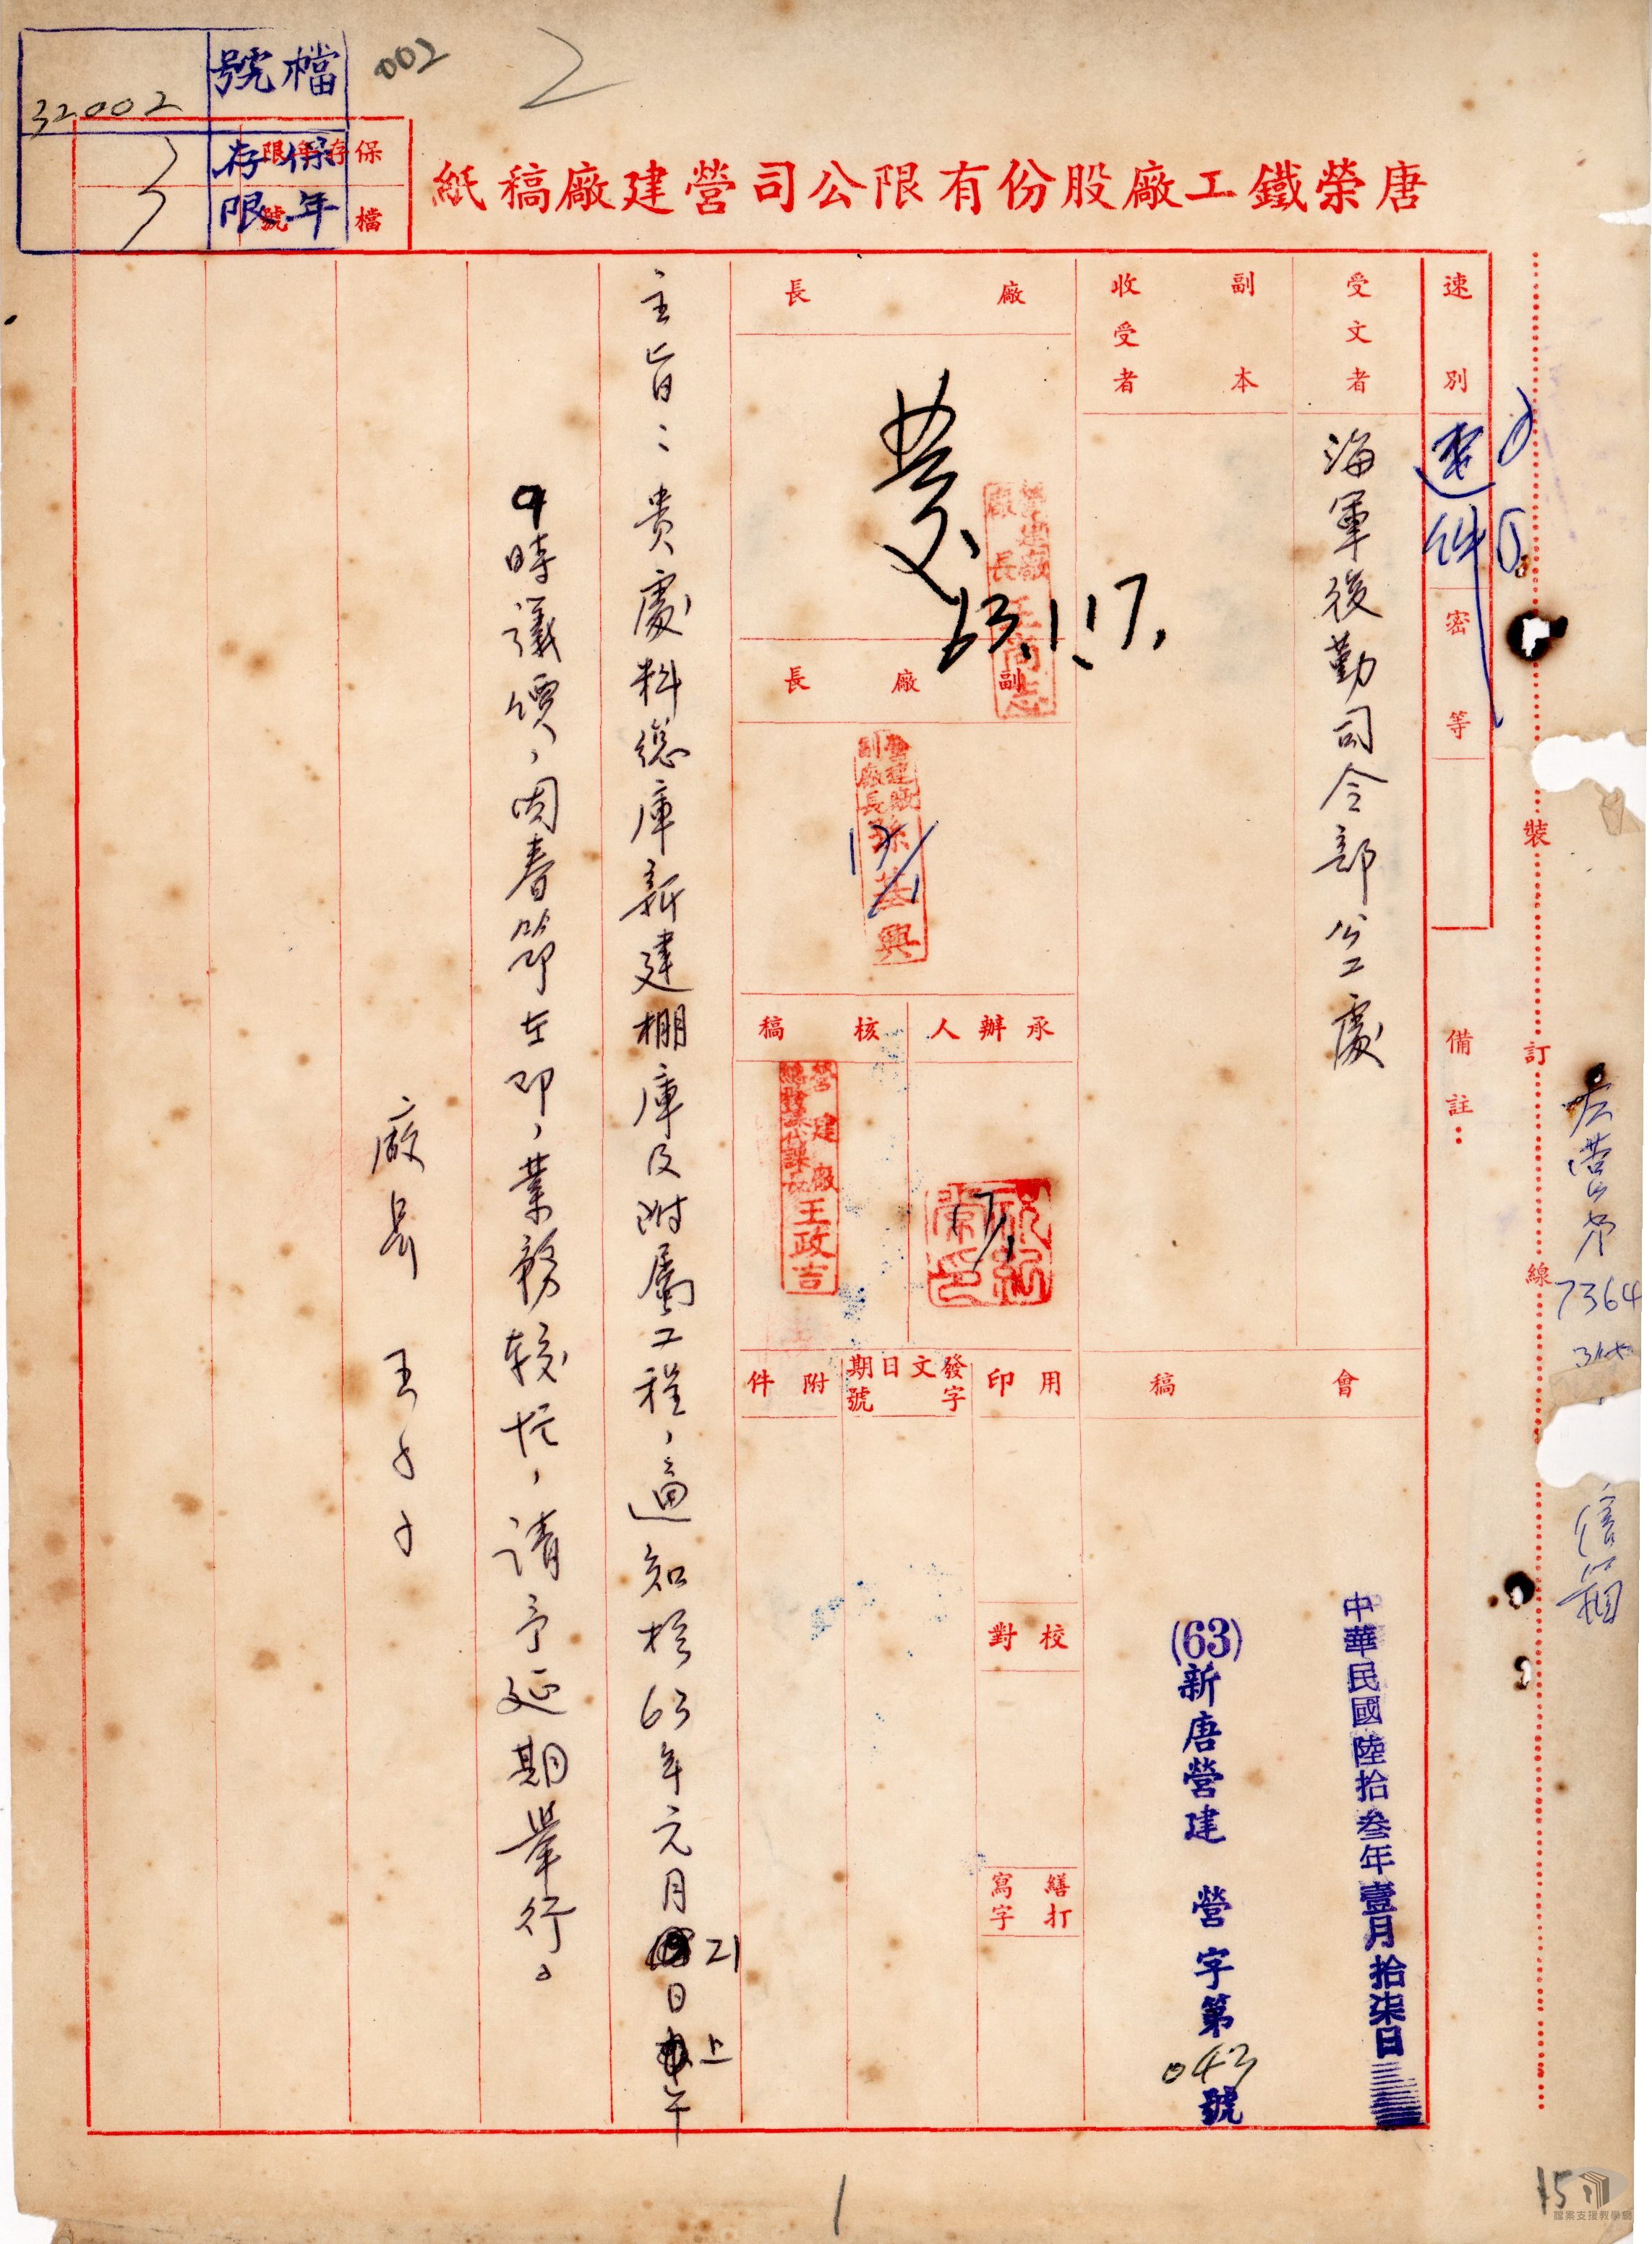 檔號
32002
002
2
保存年限
3
保存年限
檔號
唐榮鐵工廠股份有限公司營建廠稿紙
速別
速件
密等
備註：
受文者
海軍後勤司令部公工處
副本收受者
會稿
中華民國陸拾叁年壹月拾柒日
(63)新唐營建 營字第043號
廠長
發
63.1.17.
營建廠廠長 王尚志
副廠長
營建廠副廠長 孫基興
17/1
承辦人
17/1
核稿
營建廠
王政吉
用印
校對
繕打寫字
發文日期字號
附件
主旨：貴處料總庫新建棚庫及附屬工程，通知於63年元月21日上午
9時議價，因春節在即，業務較忙，請予延期舉行。
廠長 王
裝
訂
線
7364
信箱
1
15
檔案支援教學網